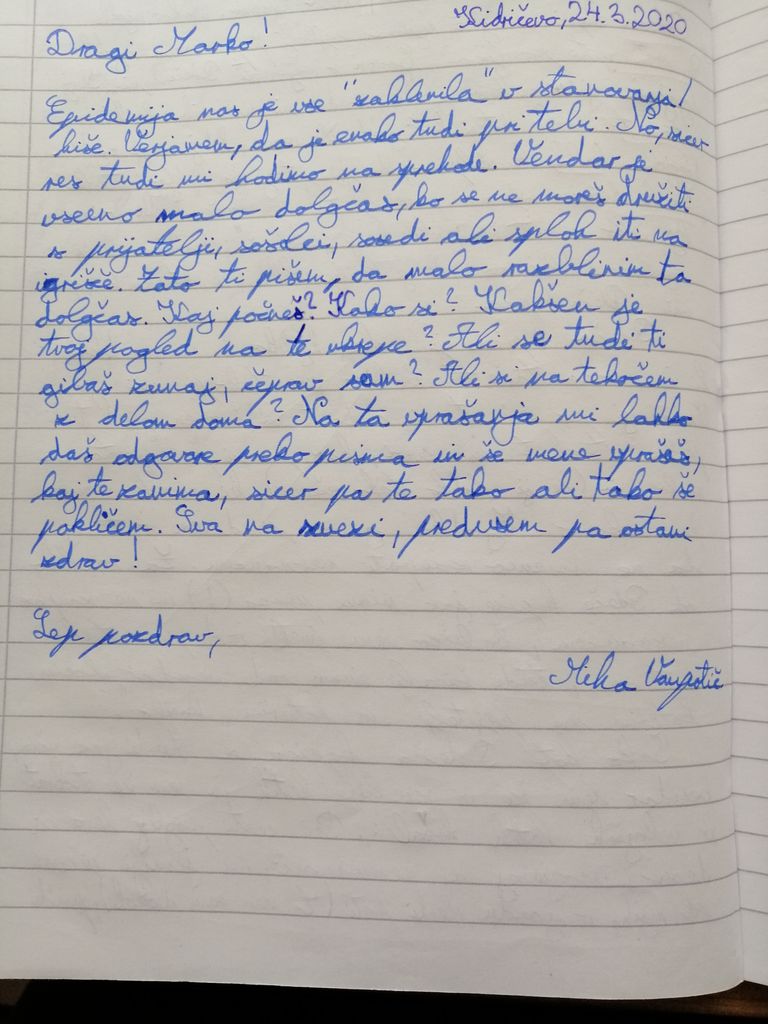 Kidričevo, 24.3.2020
Dragi Marko!
Epidemija nas je vse "zaklenila" v stanovanja/
hiše. Verjamem, da je enako tudi pri tebi. No, sicer
res tudi mi hodimo na sprehode. Vendar je
vseeno malo dolgčas, ko se ne moreš družiti
s prijatelji, sošolci, sosedi ali sploh iti na
igrišče. Zato ti pišem, da malo razblinim ta
dolgčas. Kaj počneš? Kako si? Kakšen je
tvoj pogled na te ukrepe? Ali se tudi ti
gibaš zunaj, čeprav sam? Ali si na tekočem
z delom doma? Na ta vprašanja mi lahko
daš odgovore preko pisma in še mene vprašaš,
kaj te zanima, sicer pa te tako ali tako še
pokličem. Sva na zvezi, predvsem pa ostani
zdrav!
Lep pozdrav,
Miha Vaupotič